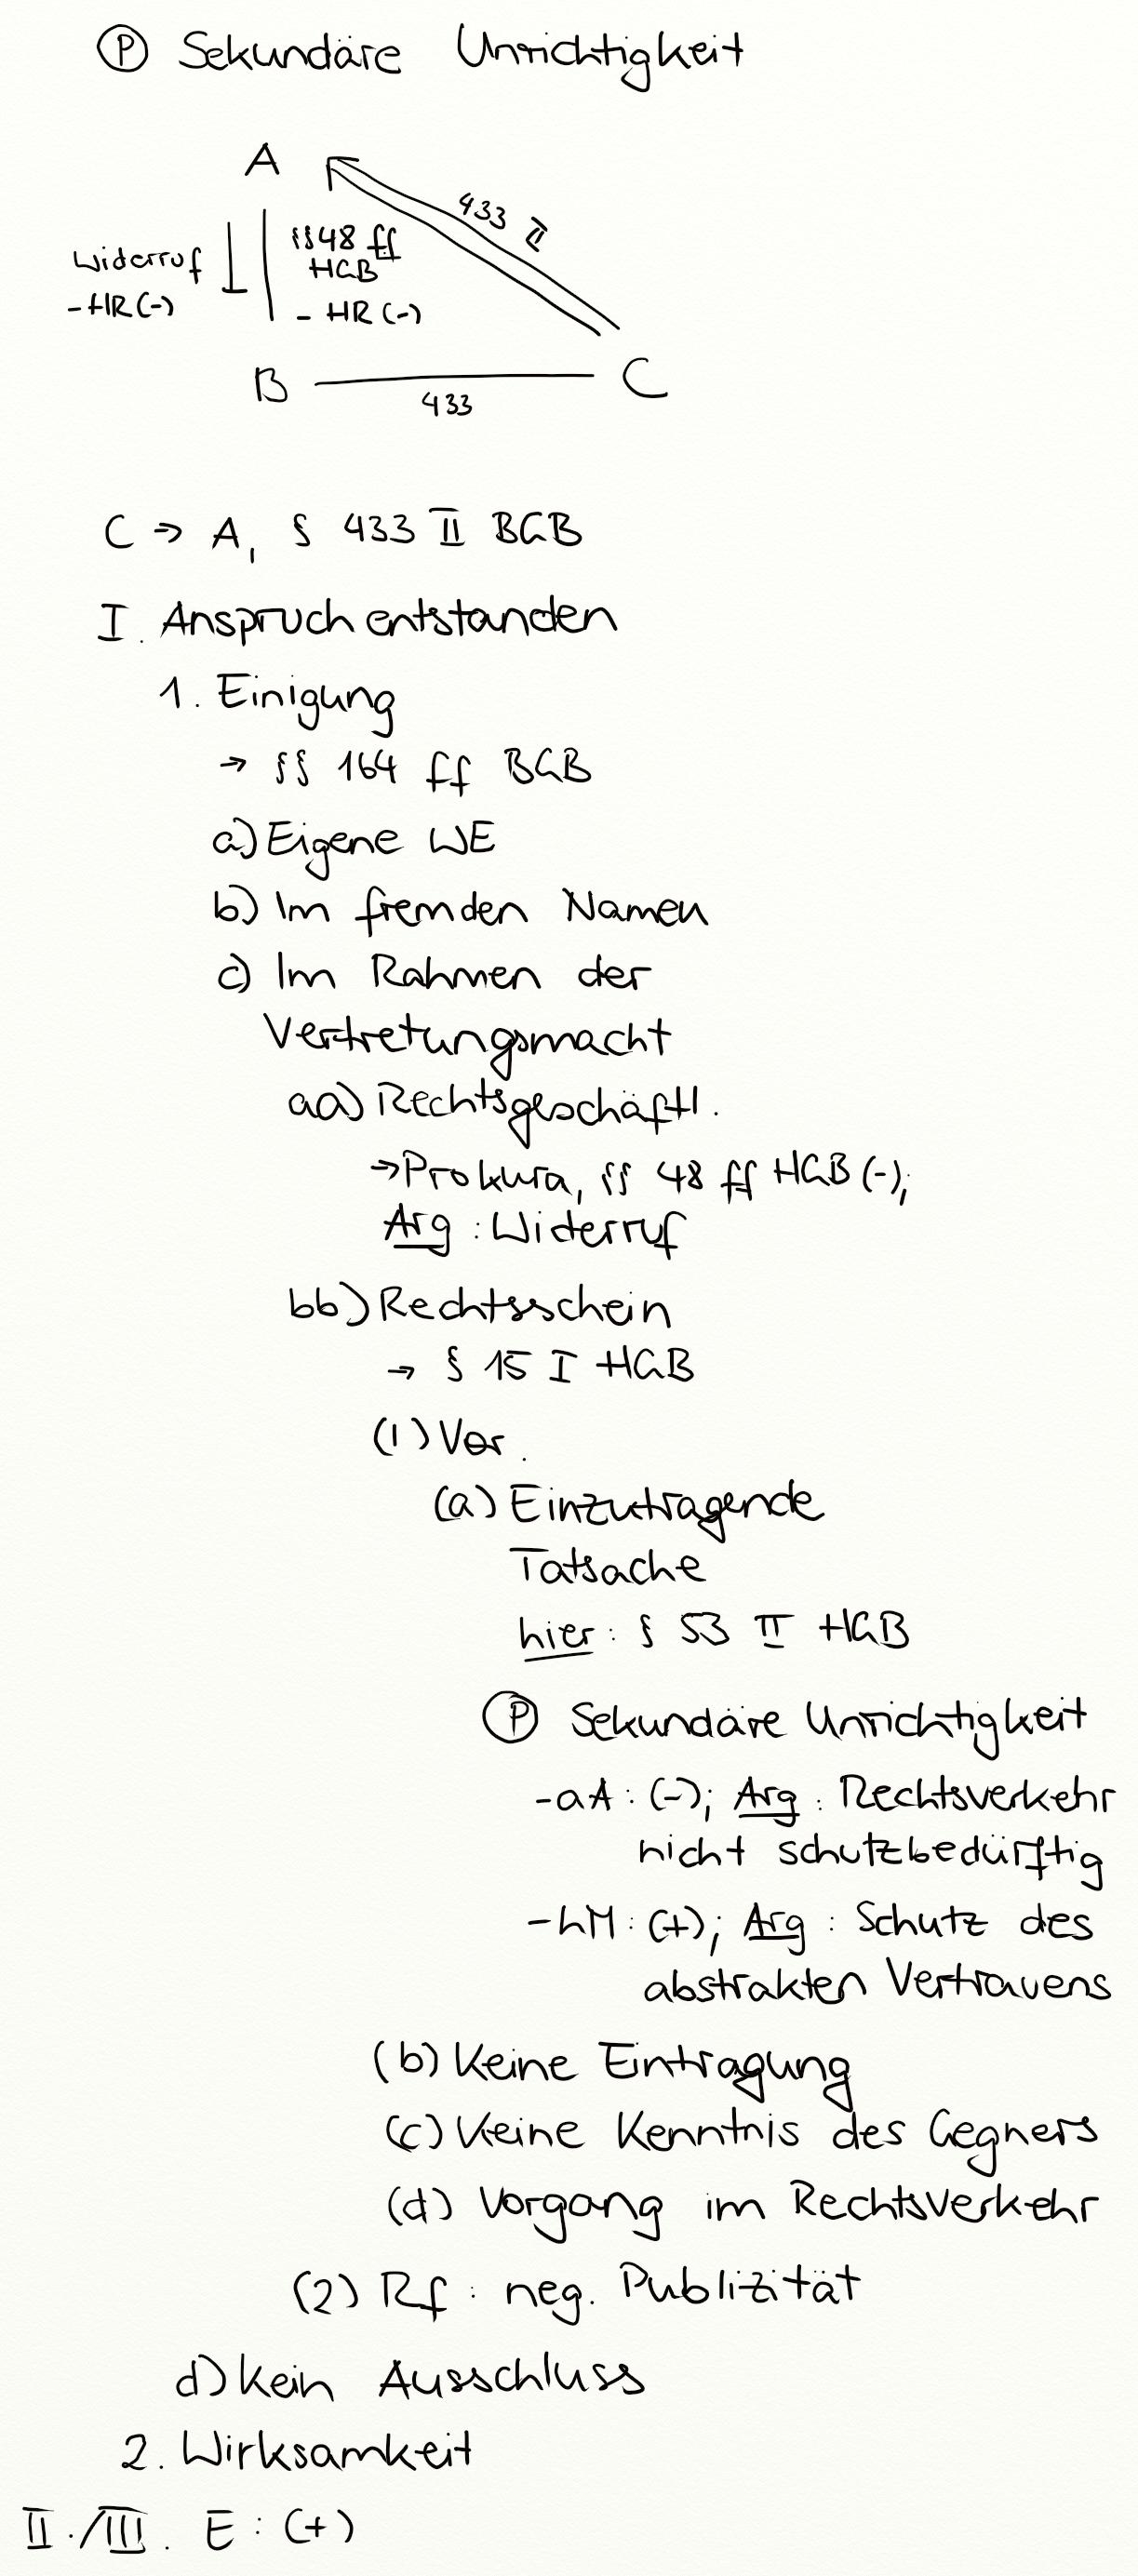 Ⓟ Sekundäre Unrichtigkeit
A
433 II
Widerruf
- HR (-)
§§ 48 ff
HGB
- HR (-)
B
C
433
C → A, § 433 II BGB
I. Anspruch entstanden
1. Einigung
→ §§ 164 ff BGB
a) Eigene WE
b) Im fremden Namen
c) Im Rahmen der
Vertretungsmacht
aa) Rechtsgeschäftl.
→ Prokura, §§ 48 ff HGB (-);
Arg : Widerruf
bb) Rechtsschein
→ § 15 I HGB
(1) Vor.
(a) Einzutragende
Tatsache
hier : § 53 II HGB
Ⓟ Sekundäre Unrichtigkeit
- aA : (-); Arg : Rechtsverkehr
nicht schutzbedürftig
- hM : (+); Arg : Schutz des
abstrakten Vertrauens
(b) Keine Eintragung
(c) Keine Kenntnis des Gegners
(d) Vorgang im Rechtsverkehr
(2) Rf : neg. Publizität
d) Kein Ausschluss
2. Wirksamkeit
II./III. E : (+)